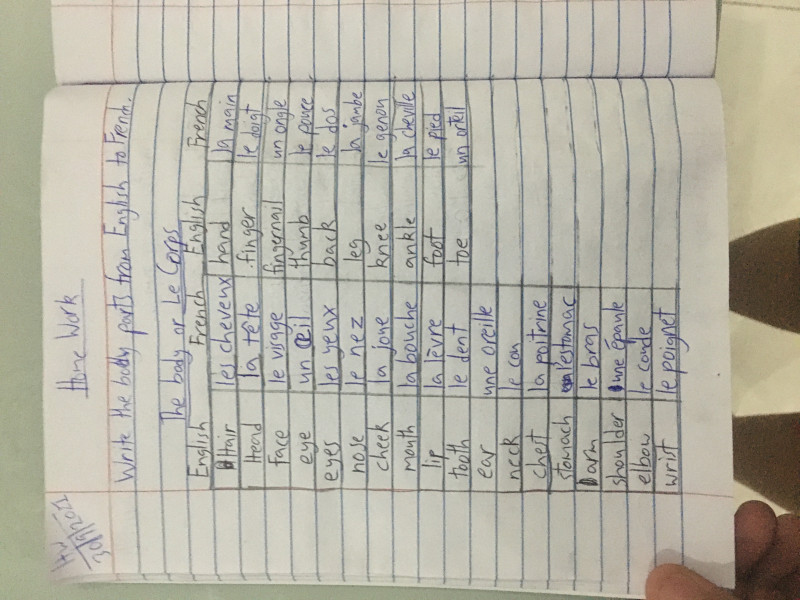 HW
30/9/2021
Home Work
Write the body parts from English to French.
The body or Le Corps
English French English French
Hair les cheveux hand la main
Head la tête finger le doigt
Face le visage fingernail un ongle
eye un œil thumb le pouce
eyes les yeux back le dos
nose le nez leg la jambe
cheek la joue knee le genou
mouth la bouche ankle la cheville
lip la lèvre foot le pied
tooth le dent toe un orteil
ear une oreille
neck le cou
chest la poitrine
stomach l'estomac
arm le bras
shoulder une épaule
elbow le coude
wrist le poignet